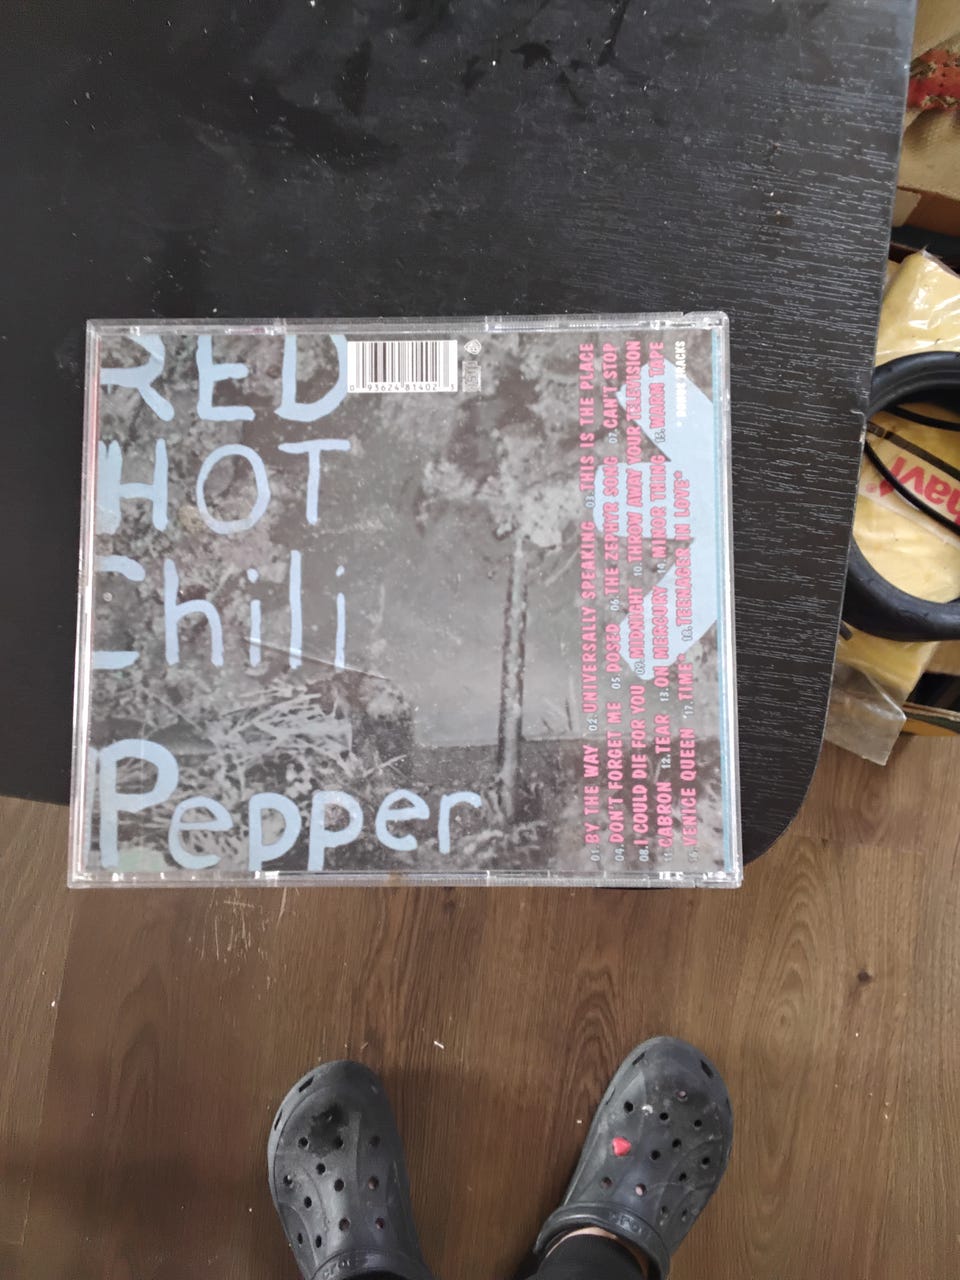 RED
HOT
Chili
Pepper
0 93624 81402 3
01. BY THE WAY 02. UNIVERSALLY SPEAKING 03. THIS IS THE PLACE
04. DON'T FORGET ME 05. DOSED 06. THE ZEPHYR SONG 07. CAN'T STOP
08. I COULD DIE FOR YOU 09. MIDNIGHT 10. THROW AWAY YOUR TELEVISION
11. CABRON 12. TEAR 13. ON MERCURY 14. MINOR THING 15. WARM TAPE
16. VENICE QUEEN 17. TIME* 18. TEENAGER IN LOVE*
* BONUS TRACKS